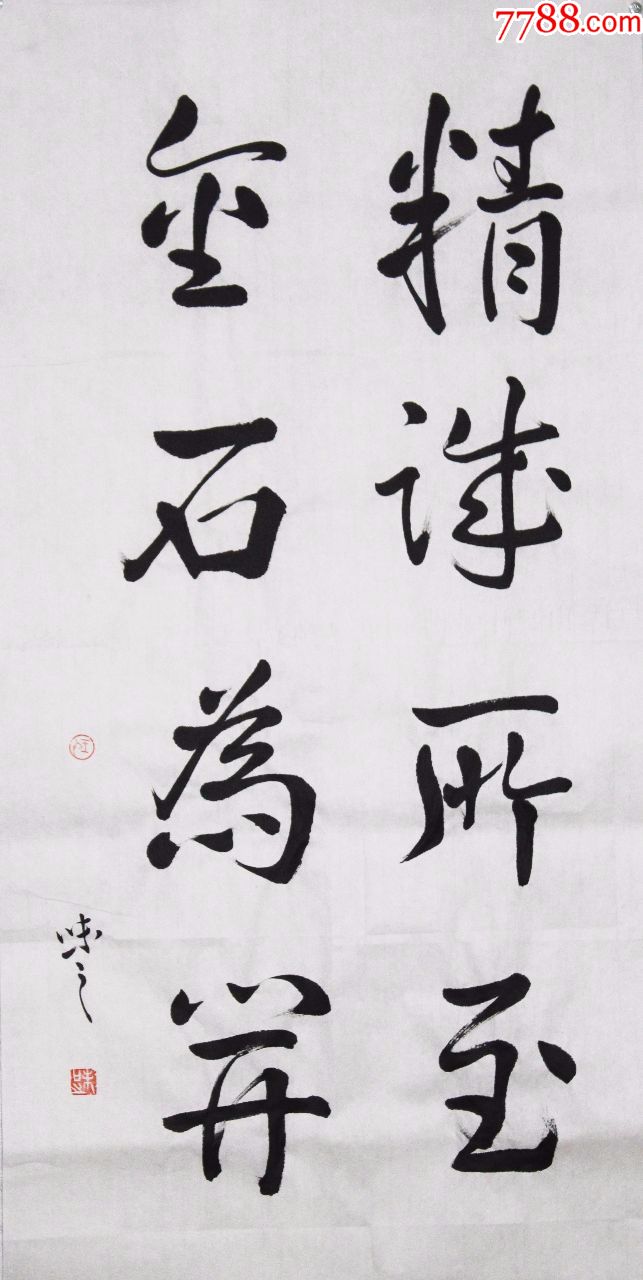 7788.com
精诚所至
金石為開
味之